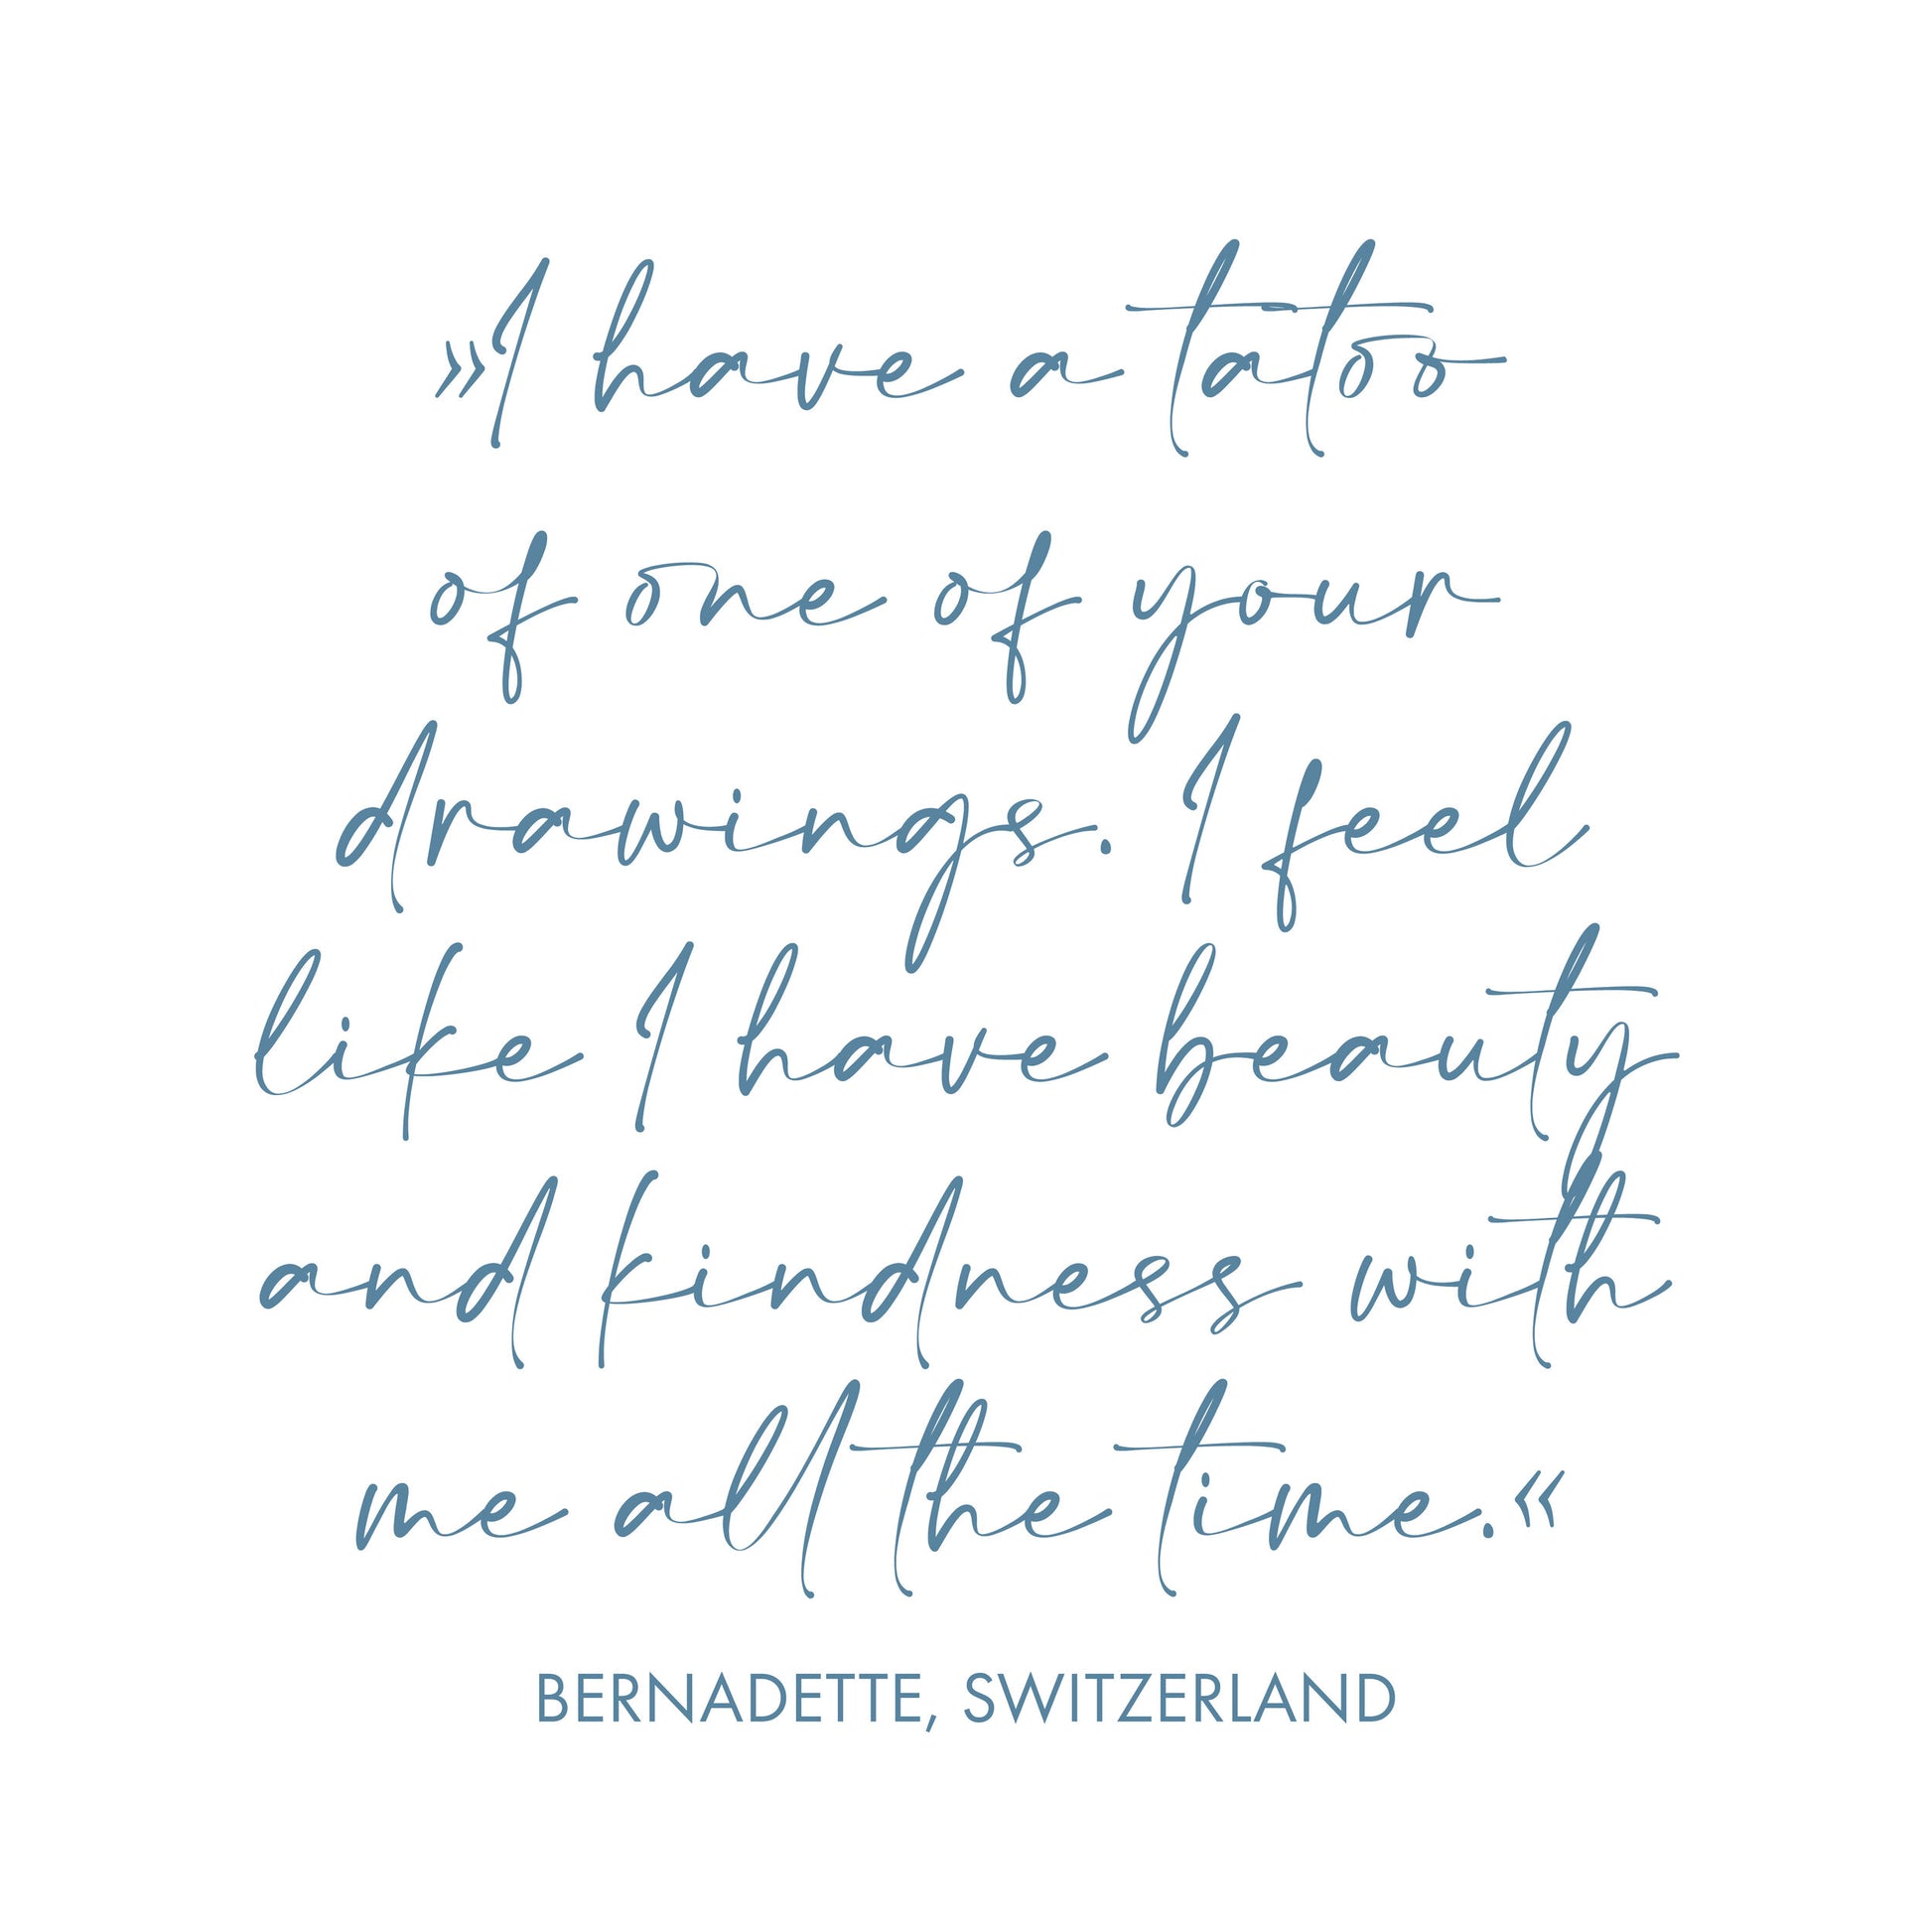 »I have a tatoo
of one of your
drawings. I feel
like I have beauty
and kindness with
me all the time.«
BERNADETTE, SWITZERLAND